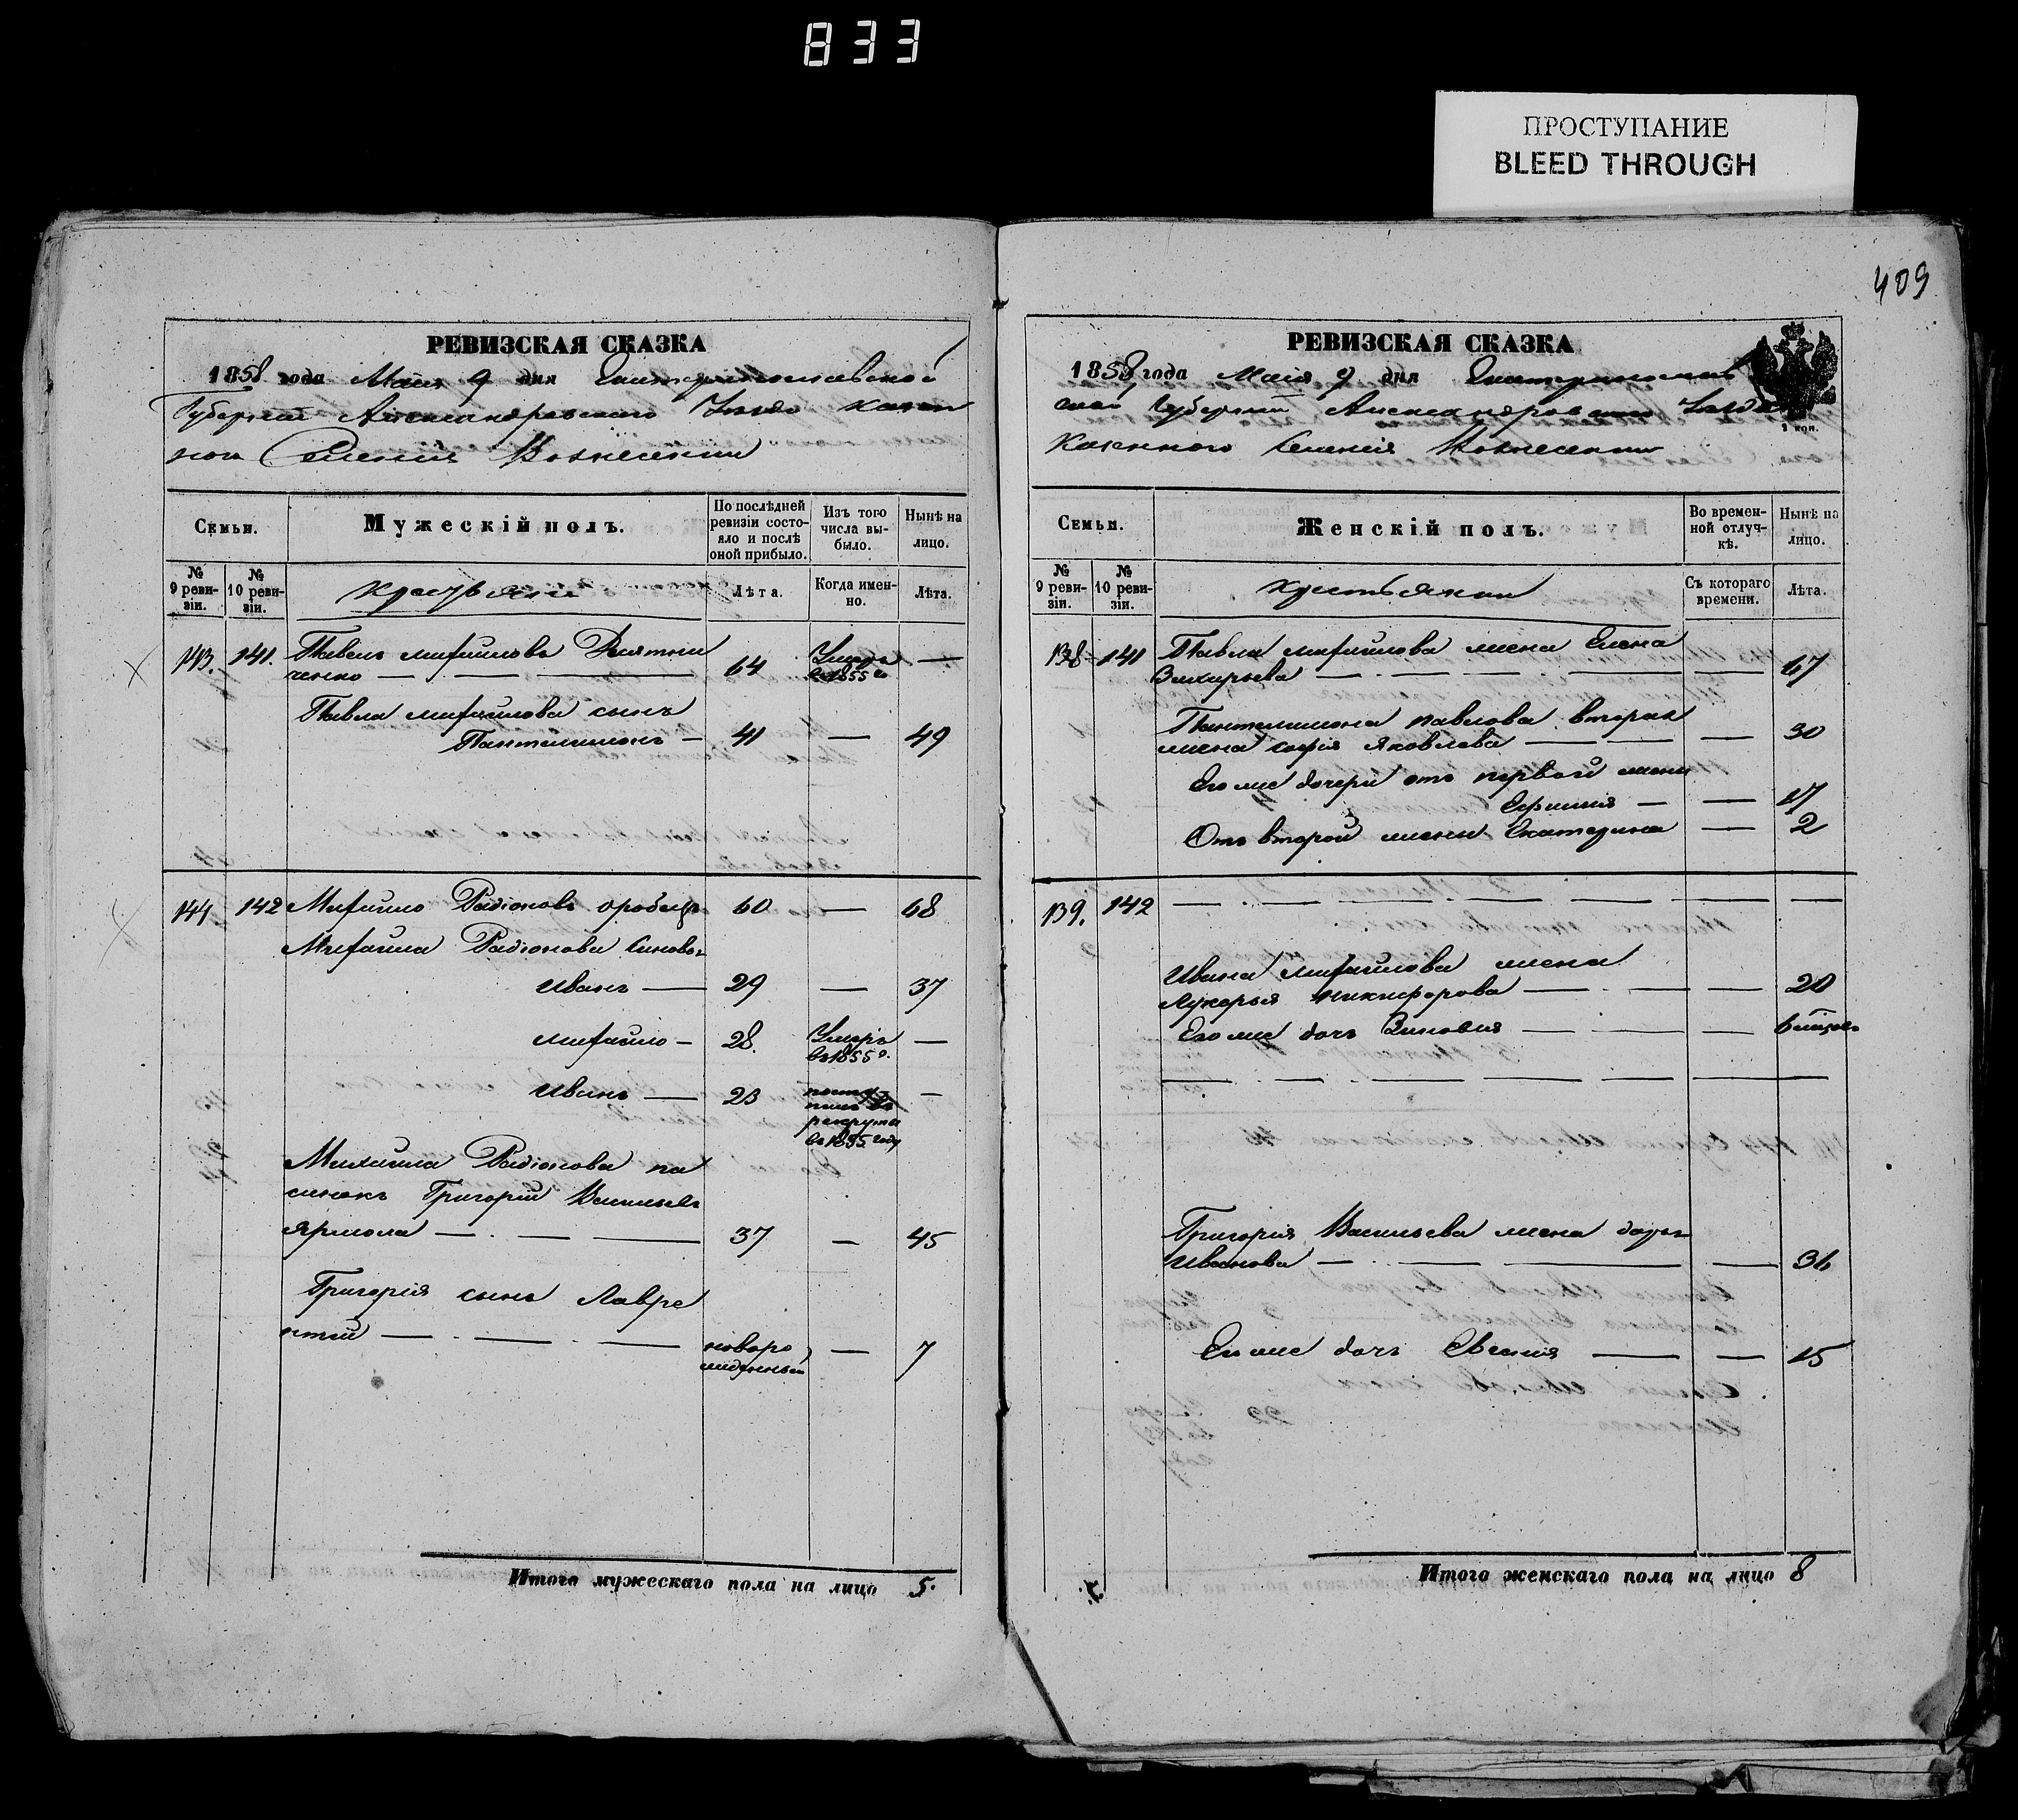 833
ПРОСТУПАНИЕ
BLEED THROUGH
409
РЕВИЗСКАЯ СКАЗКА
1858 года Маия 9 дня Екатеринославской
Губернии Александровского Уезда казен
ного Селения Вознесенки
Семьи.
Мужескій полъ.
По послѣдней ревизіи состо-
яло и послѣ оной прибыло.
Изъ того числа вы-
было.
Нынѣ на лицо.
№ 9 реви-
зіи.
№ 10 реви-
зіи.
Лѣта.
Когда имен-
но.
Лѣта.
143. 141. Павелъ Михайловъ
ченко 64 Умеръ въ 1855 го —
Павла Михайлова сынъ
Пантелимонъ — 41 — 49
144 142 Михайло Радіоновъ 60 — 68
Михайла Радіонова синовья
Иванъ — 29 — 37
Михайло — 28. Умеръ въ 1855 г. —
Иванъ — 23 посту
пилъ въ
рекруты
въ 1855 году —
Михайла Радіонова па
синокъ Григорій Васильевъ
Ярмола — 37 — 45
Григорія сынъ Лавре
нтій — новоро
жденный — 7
Итого мужескаго пола на лицо 5.
РЕВИЗСКАЯ СКАЗКА
1858 года Маія 9 дня Екатеринослав
ской Губерніи Александровского Уезда
Казенного Селенія Вознесенки
1 коп.
Семьи.
Женскій полъ.
Во времен-
ной отлуч-
кѣ.
Нынѣ на лицо.
№ 9 реви-
зіи.
№ 10 реви-
зіи.
Съ котораго времени.
Лѣта.
138 141 Павла Михайлова жена Елена
Захарьева — 67
Пантелимона Павлова вторая
жена Софія Яковлева — — 30
Его же дочери отъ первой жени
Ефимия — — 17
Отъ второй жени Екатерина — 2
139. 142
Ивана Михайлова жена
Лукерья Никифорова — — 20
Его же дочь Зиновия — —
Григорія Васильева жена
Иванова — — 36
Его же дочь Евгения — — 15
Итого женскаго пола на лицо 8